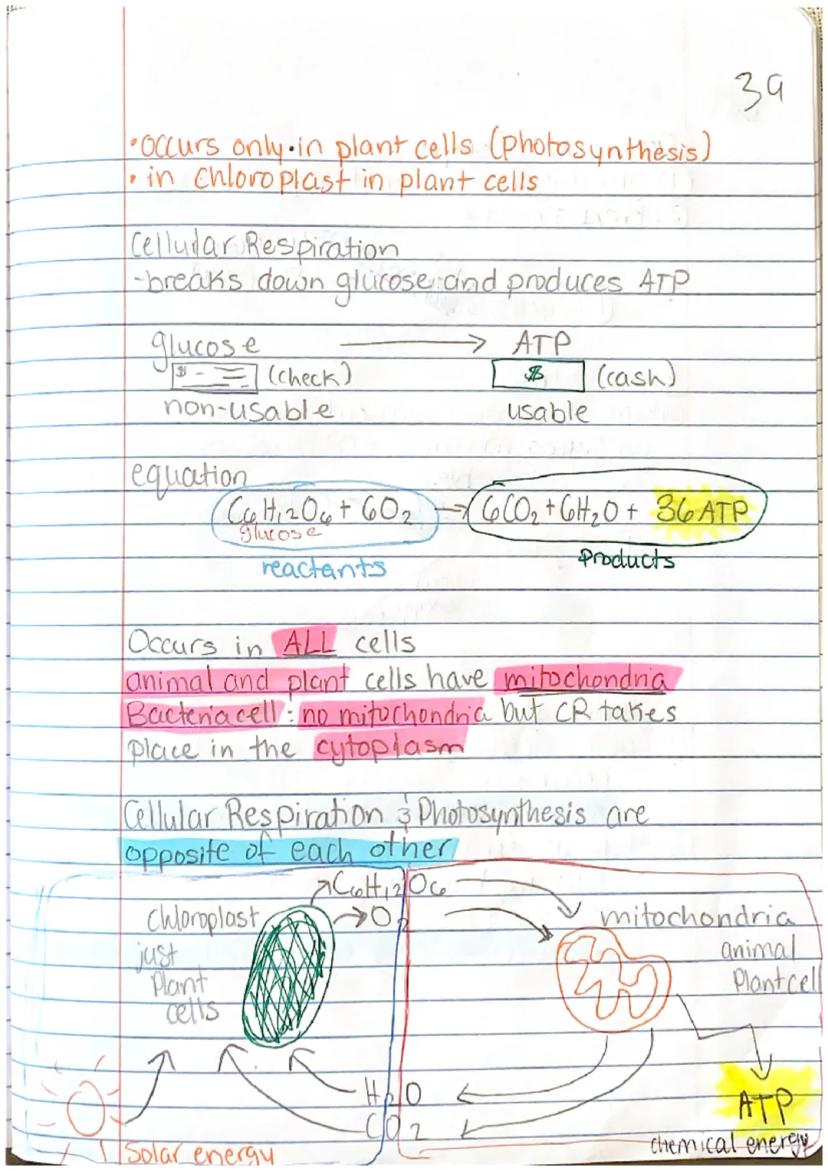 39
•Occurs only•in plant cells (photosynthesis)
• in chloroplast in plant cells
Cellular Respiration
-breaks down glucose and produces ATP
glucose → ATP
$ (check) $ (cash)
non-usable usable
equation
C6H12O6 + 6O2 → 6CO2+6H2O + 36ATP
glucose
reactants products
Occurs in ALL cells
animal and plant cells have mitochondria
Bacteria cell: no mitochondria but CR takes
place in the cytoplasm
Cellular Respiration & Photosynthesis are
opposite of each other
C6H12O6
chloroplast O2 mitochondria
just animal
plant Plant cell
cells
H2O
ATP
CO2
Solar energy chemical energy